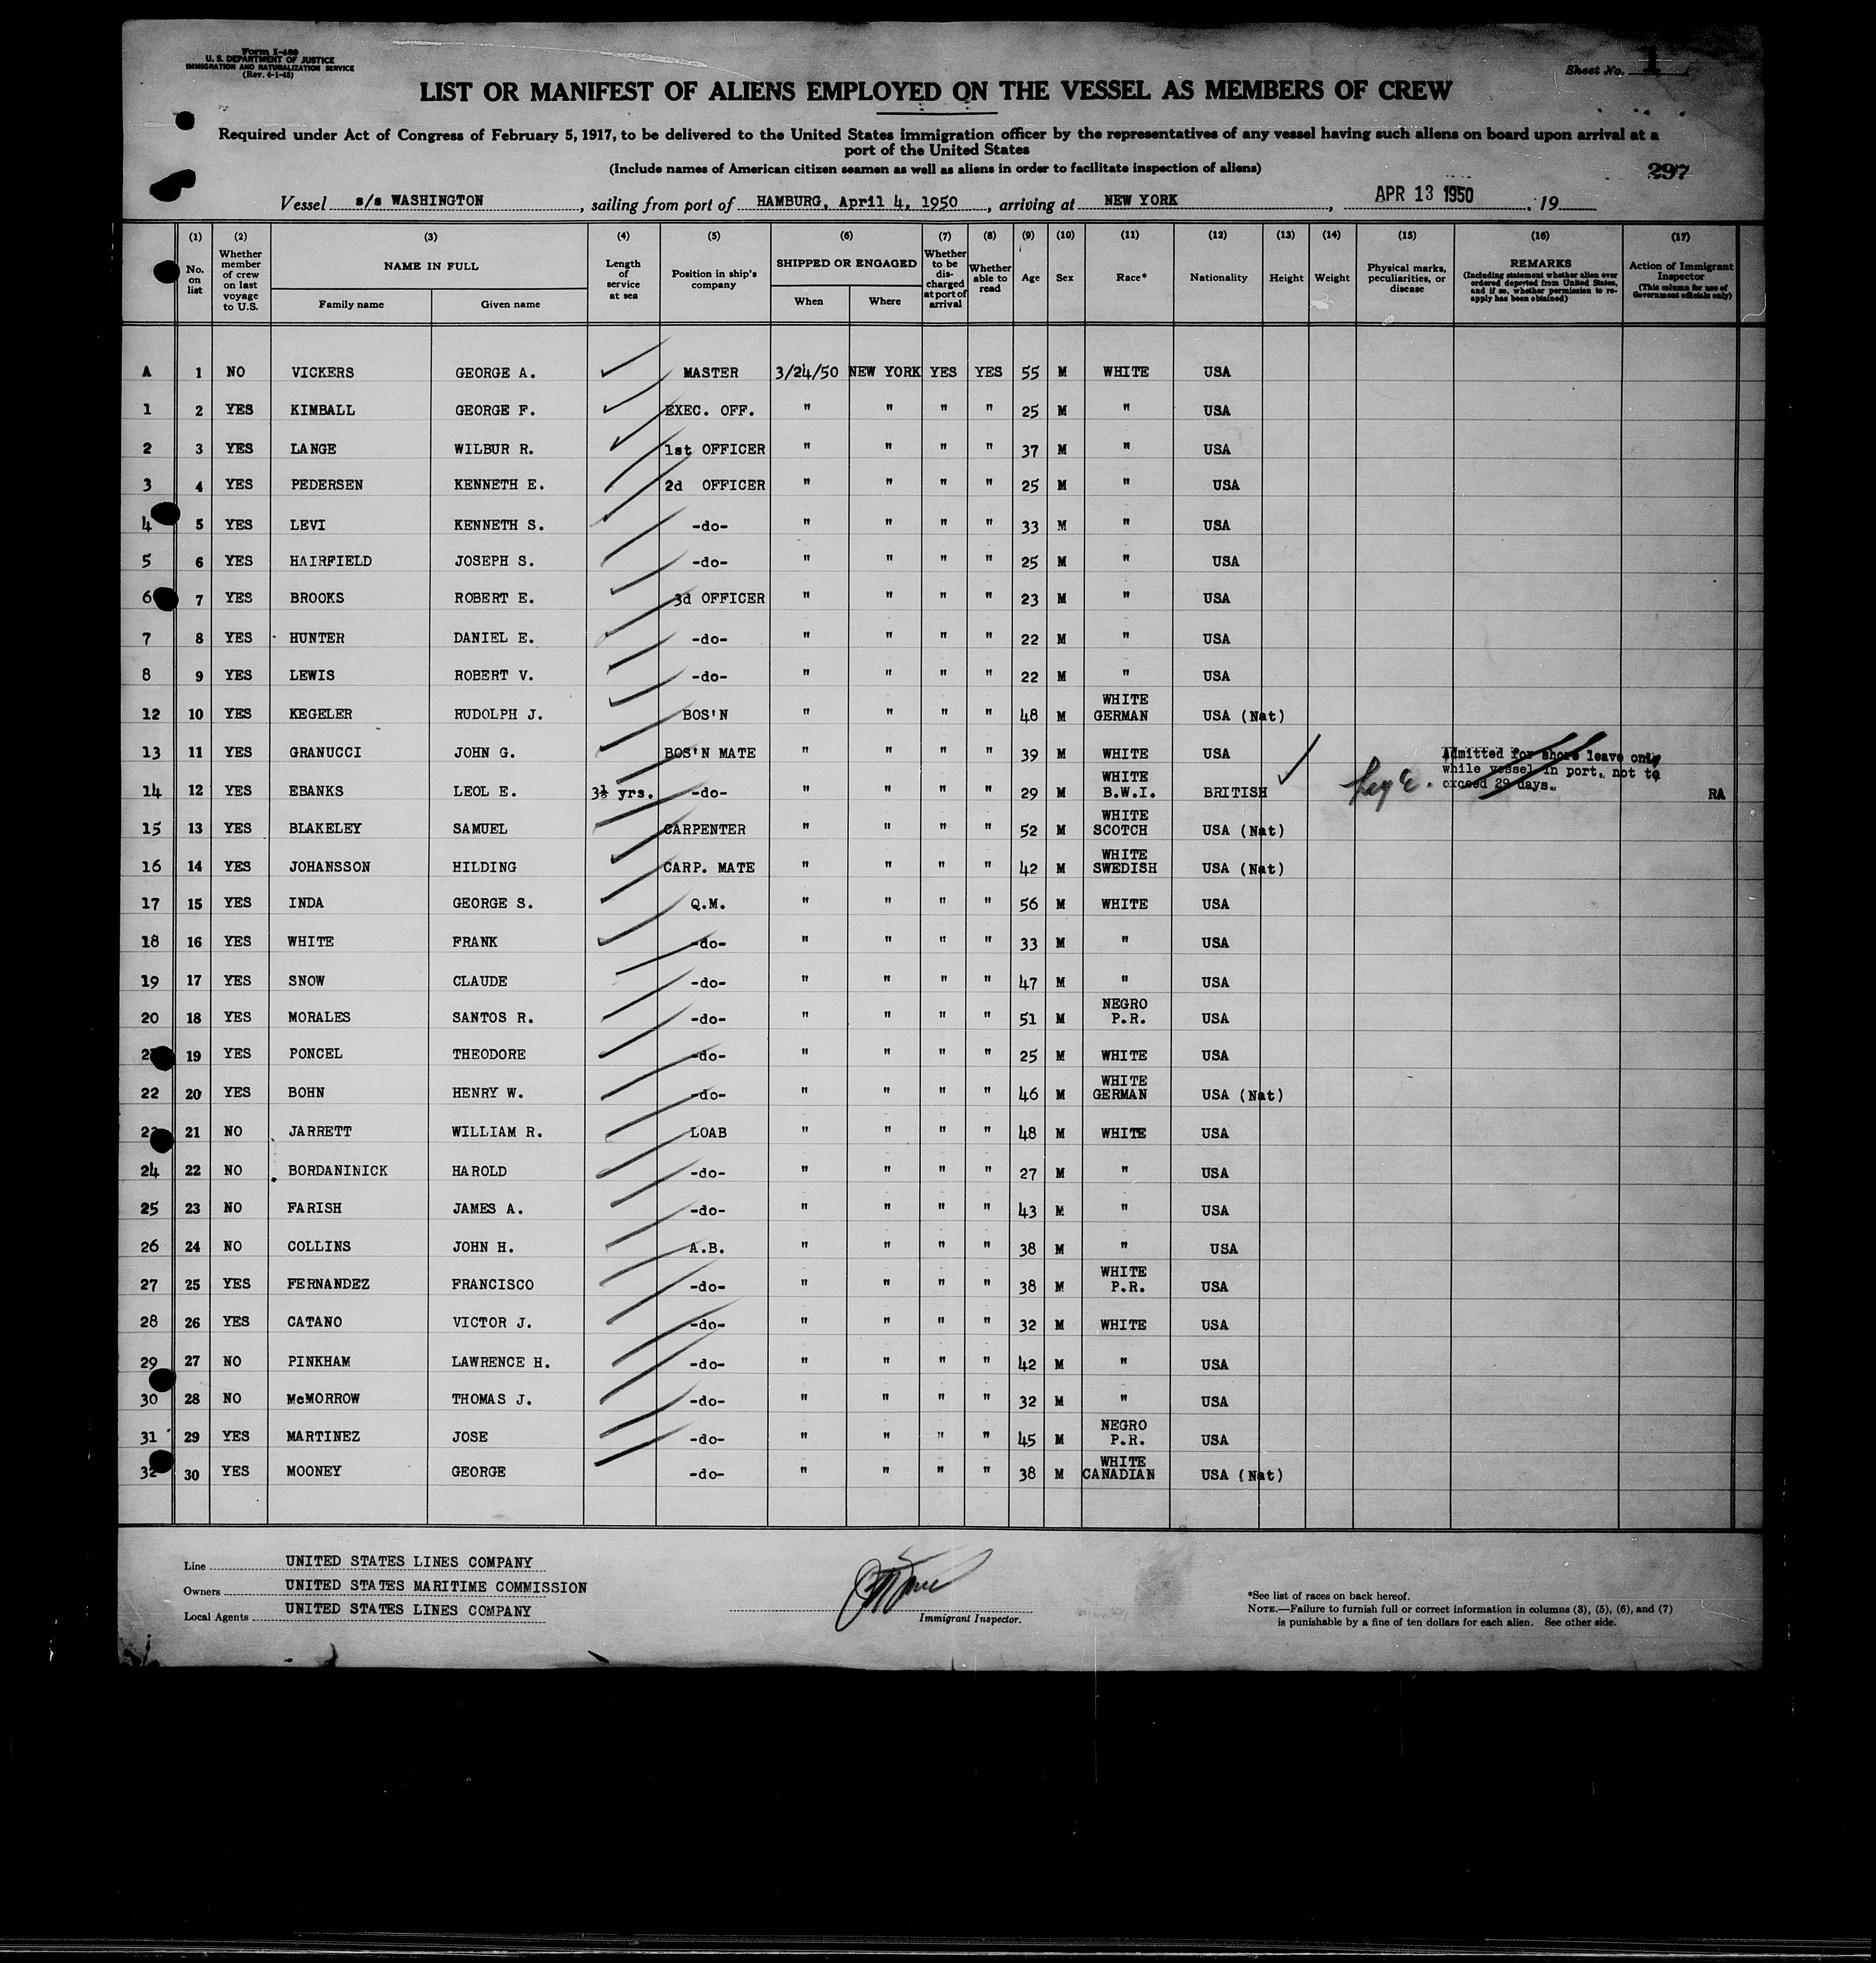 Form I-480
U. S. DEPARTMENT OF JUSTICE
IMMIGRATION AND NATURALIZATION SERVICE
(Rev. 4-1-45)
Sheet No. 1
LIST OR MANIFEST OF ALIENS EMPLOYED ON THE VESSEL AS MEMBERS OF CREW
Required under Act of Congress of February 5, 1917, to be delivered to the United States immigration officer by the representatives of any vessel having such aliens on board upon arrival at a
port of the United States
(Include names of American citizen seamen as well as aliens in order to facilitate inspection of aliens)
297
Vessel s/s WASHINGTON, sailing from port of HAMBURG, April 4, 1950, arriving at NEW YORK, APR 13 1950, 19
(1) (2) (3) (4) (5) (6) (7) (8) (9) (10) (11) (12) (13) (14) (15) (16) (17)
No. on list Whether member of crew on last voyage to U.S. NAME IN FULL Family name Given name Length of service at sea Position in ship's company SHIPPED OR ENGAGED When Where Whether to be discharged at port of arrival Whether able to read Age Sex Race* Nationality Height Weight Physical marks, peculiarities, or disease REMARKS (Including statement whether alien ever ordered deported from United States, and if so, whether permission to reapply has been obtained) Action of Immigrant Inspector (This column for use of Government officials only)
A 1 NO VICKERS GEORGE A. MASTER 3/24/50 NEW YORK YES YES 55 M WHITE USA
1 2 YES KIMBALL GEORGE F. EXEC. OFF. " " " " 25 M " USA
2 3 YES LANGE WILBUR R. 1st OFFICER " " " " 37 M " USA
3 4 YES PEDERSEN KENNETH E. 2d OFFICER " " " " 25 M " USA
4 5 YES LEVI KENNETH S. -do- " " " " 33 M " USA
5 6 YES HAIRFIELD JOSEPH S. -do- " " " " 25 M " USA
6 7 YES BROOKS ROBERT E. 3d OFFICER " " " " 23 M " USA
7 8 YES HUNTER DANIEL E. -do- " " " " 22 M " USA
8 9 YES LEWIS ROBERT V. -do- " " " " 22 M " USA
12 10 YES KEGELER RUDOLPH J. BOS'N " " " " 48 M WHITE GERMAN USA (Nat)
13 11 YES GRANUCCI JOHN G. BOS'N MATE " " " " 39 M WHITE USA
14 12 YES EBANKS LEOL E. 3½ yrs. -do- " " " " 29 M WHITE B.W.I. BRITISH Admitted for shore leave only while vessel in port, not to exceed 29 days. RA
15 13 YES BLAKELEY SAMUEL CARPENTER " " " " 52 M WHITE SCOTCH USA (Nat)
16 14 YES JOHANSSON HILDING CARP. MATE " " " " 42 M WHITE SWEDISH USA (Nat)
17 15 YES INDA GEORGE S. Q.M. " " " " 56 M WHITE USA
18 16 YES WHITE FRANK -do- " " " " 33 M " USA
19 17 YES SNOW CLAUDE -do- " " " " 47 M " USA
20 18 YES MORALES SANTOS R. -do- " " " " 51 M NEGRO P.R. USA
19 YES PONCEL THEODORE -do- " " " " 25 M WHITE USA
22 20 YES BOHN HENRY W. -do- " " " " 46 M WHITE GERMAN USA (Nat)
23 21 NO JARRETT WILLIAM R. LOAB " " " " 48 M WHITE USA
24 22 NO BORDANINICK HAROLD -do- " " " " 27 M " USA
25 23 NO FARISH JAMES A. -do- " " " " 43 M " USA
26 24 NO COLLINS JOHN H. A.B. " " " " 38 M " USA
27 25 YES FERNANDEZ FRANCISCO -do- " " " " 38 M WHITE P.R. USA
28 26 YES CATANO VICTOR J. -do- " " " " 32 M WHITE USA
29 27 NO PINKHAM LAWRENCE H. -do- " " " " 42 M " USA
30 28 NO McMORROW THOMAS J. -do- " " " " 32 M " USA
31 29 YES MARTINEZ JOSE -do- " " " " 45 M NEGRO P.R. USA
32 30 YES MOONEY GEORGE -do- " " " " 38 M WHITE CANADIAN USA (Nat)
Line UNITED STATES LINES COMPANY
Owners UNITED STATES MARITIME COMMISSION
Local Agents UNITED STATES LINES COMPANY
Immigrant Inspector.
*See list of races on back hereof.
NOTE.—Failure to furnish full or correct information in columns (3), (5), (6), and (7)
is punishable by a fine of ten dollars for each alien. See other side.